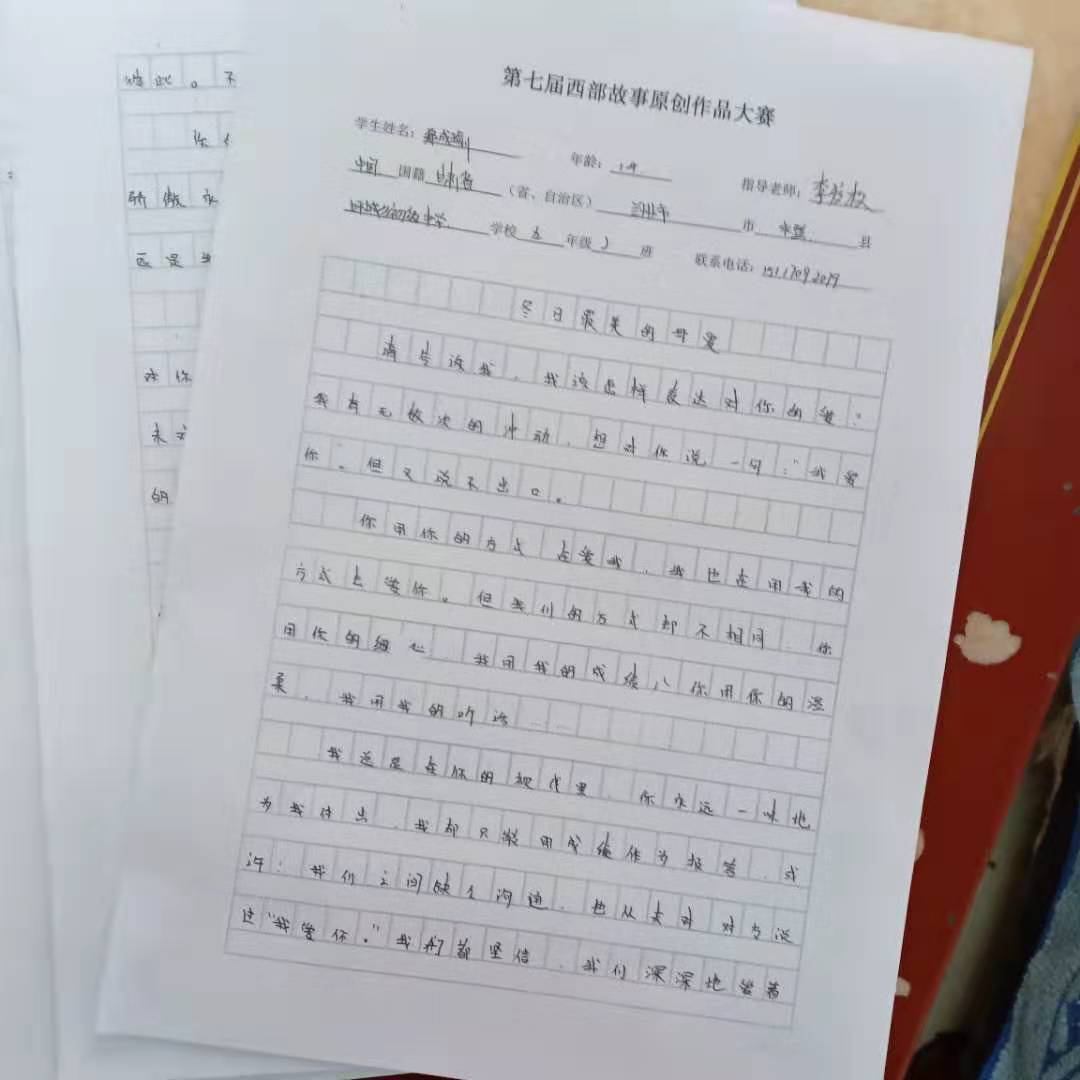 第七届西部故事原创作品大赛
学生姓名： 年龄： 指导老师：李
中国 国籍 甘肃省 （省、自治区） 兰州市 市 县
初级中学 学校 年级 班 联系电话：
冬日最美的母爱
请告诉我，我该怎样表达对你的爱？
我有无数次的冲动，想对你说一句：“我爱
你”。但又说不出口。
你用你的方式在爱我，我也在用我的
方式去爱你。但我们的方式却不相同，你
用你的细心 我用我的成绩，你用你的温
柔，我用我的听话……
我总是在你的视线里，你永远一味地
为我付出，我却只能用成绩作为报答，或
许：我们之间缺乏沟通，也从未对对方说
过“我爱你。”我们都坚信，我们深深地爱着
彼此。不
你
骄傲永
远是
你
未
的